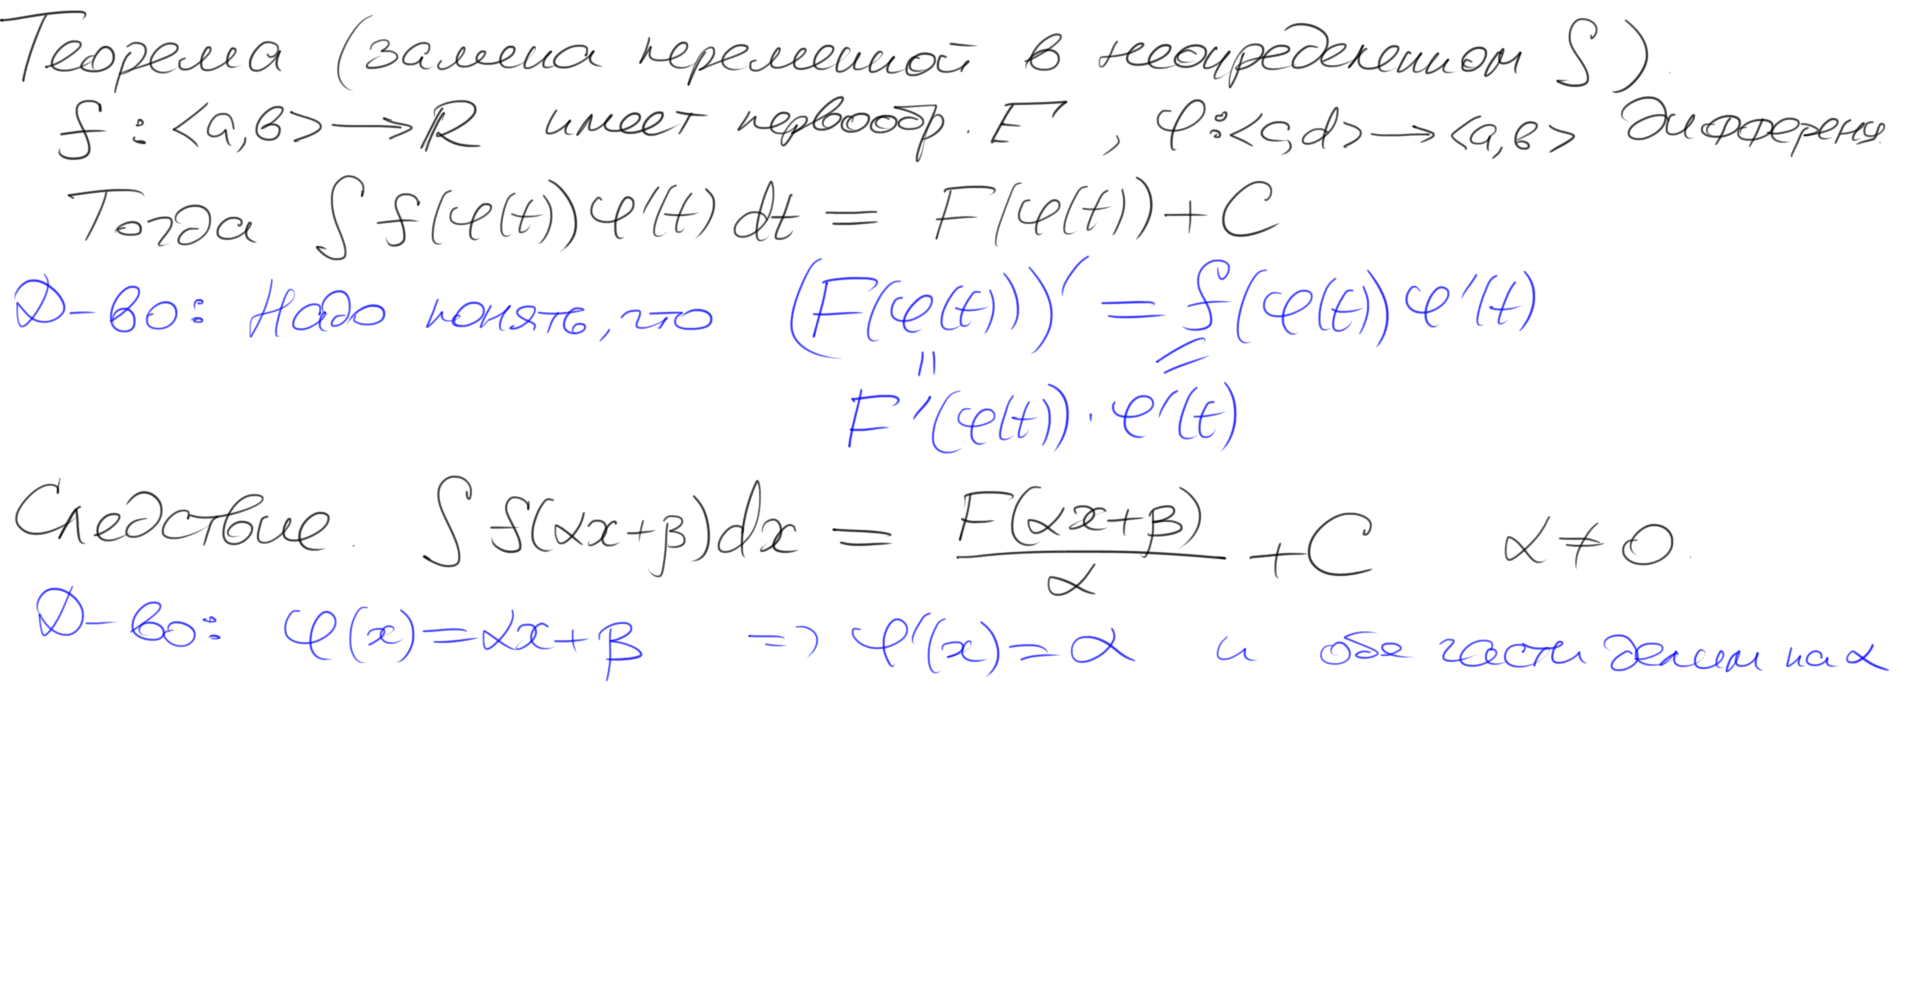 Теорема (замена переменной в неопределенном ∫).
f : <a,b> → ℝ имеет первообр. F, φ: <c,d> → <a,b> дифференц.
Тогда ∫ f(φ(t)) φ'(t) dt = F(φ(t)) + C
Д-во: Надо понять, что (F(φ(t)))' = f(φ(t)) φ'(t)
= =
F'(φ(t)) · φ'(t)
Следствие. ∫ f(αx+β) dx = F(αx+β)/α + C α ≠ 0.
Д-во: φ(x) = αx+β => φ'(x) = α и обе части делим на α